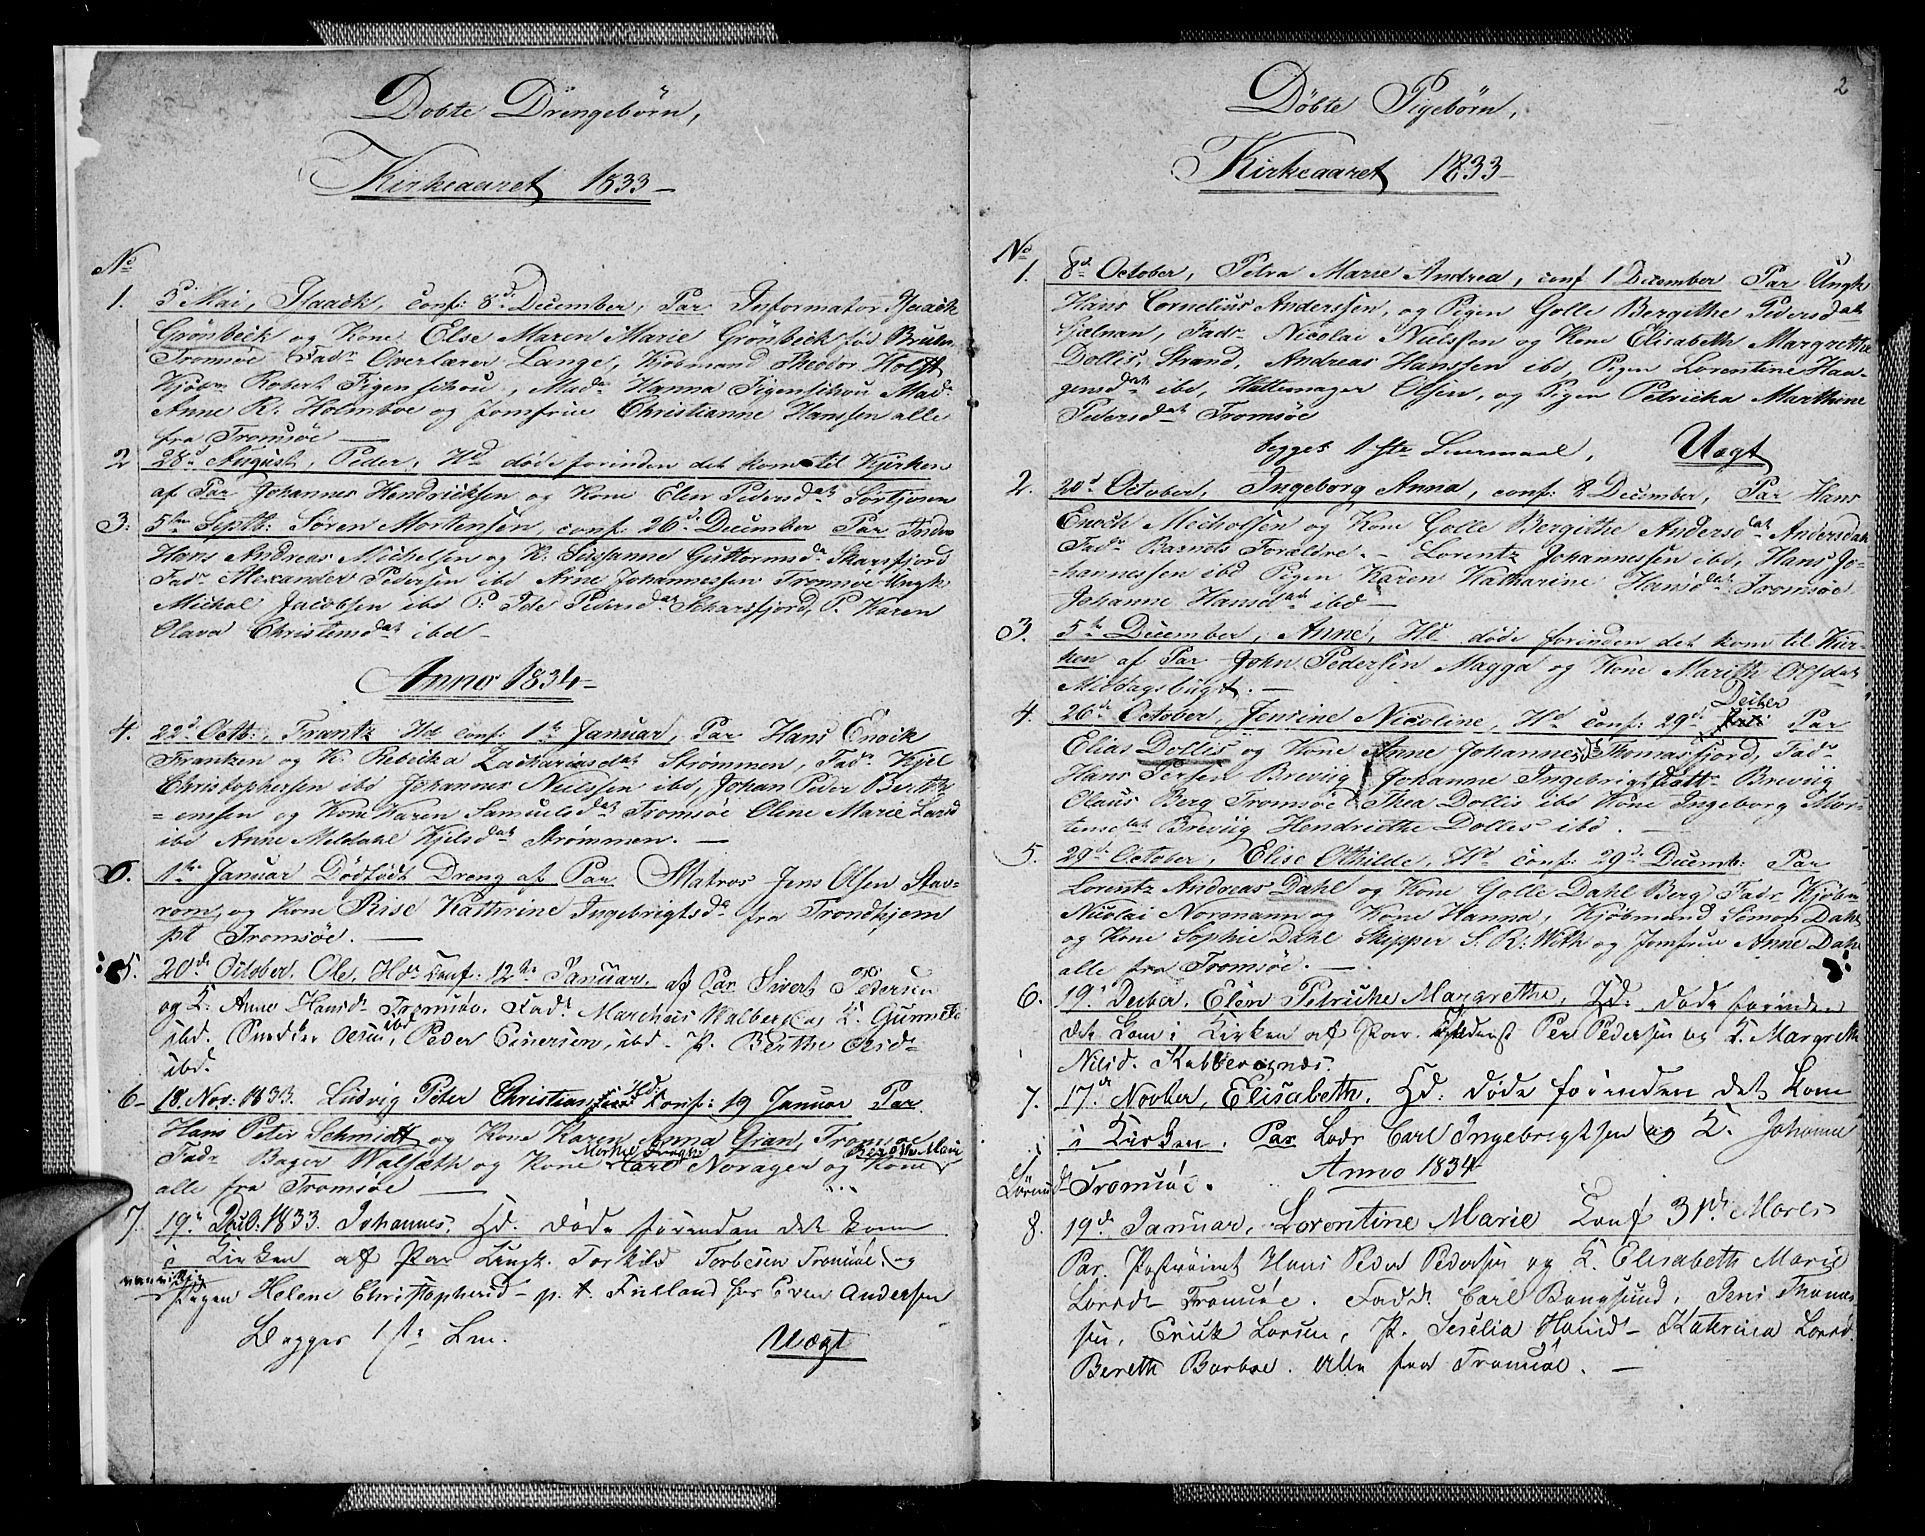 Döbte Drengebörn,
Kirkeaaret 1833
No
1. 5 Mai, Isaack, conf: 8d December, Par Informator Isaack
Grönbeck og Kone Else Maren Marie Grönbeck föd Bruun
Tromsöe Fadr Overlærer Lange, Kjöbmand Theodor Holst
Kjöbm Robert Figenschou, Made Hanna Figenschou Made
Anne R. Holmboe og Jomfrue Christianne Hanssen alle
fra Tromsöe
2 28d August, Peder, Hd döde forinden det kom til Kjerken
af Par Johannes Hendricksen og Kone Elen Pedersdat
3. 5te Septb: Sören Mortensen, conf: 26d December Par Inder
Hans Andreas Michelsen og K. Sussanne Guttormsd Skarsfjord
Fadr Alexander Pedersen ibd Arne Johannessen Tromsöe Ungk
Michal Jacobsen ibd P. Ide Pedersdat Scharsfjord, P. Karen
Olava Christensdat ibd
Anno 1834
4. 22d Octb:, Frantz Hd conf: 1te Januar, Par Hans Enock
Frantzen og K. Rebecka Zachariasdat Strömmen, Fadr Kjel
Christophersen ibd Johannes Neilssen ibd, Johan Peder Bernth
=ensen og Kone Karen Samuelsdat Tromsöe Oline Marie Lard
ibd Anne Meldahl Kjelsdat Strömmen.
1te Januar Dödfödt Dreng af Par Matros Jens Olsen Stav-
rom, og Kone Rise Kathrine Ingebrigtsd fra Trondhjem
pt Tromsöe.
5. 20de October. Ole, Hd Conf: 12te Januar. af Par Sivert Pedersen
og K. Anne Hansd Tromsöe. Fadd. Marchus Walberg og K. Gunnild
ibd. Snedker Olsen ibd, Peder Einersen, ibd. P. Berthe Olsd
ibd.
6 18 Nov: 1833. Ludvig Peter Christian Hd: Conf: 19 Januar Par
Hans Peter Schmidt og Kone Karen Anna Gian, Tromsöe
Fadr Bager Walsæth og Kone Carl Norager og Kone
alle fra Tromsöe
7. 19de Dcb: 1833. Johannes, Hd. döde förenden det kom
i Kirken af Par Ungk. Torkild Torbesen Tromsöe, og
Pigen Helene Christophersd p. t. Finland hos Even Andersen
Begges 1ste Lm. Uægt

2
Döbte Pigebörn,
Kirkeaaret 1833
No
1. 8d October, Petra Marie Andrea, conf 1 December Par Ungk
Hans Cornelius Anderssen, og Pigen Golle Bergithe Pedersdat
Hjelman, Fadr Nicolai Nielssen og Kone Elisabeth Margrethe
Dollis, Strand, Andreas Hanssen ibd, Pigen Lorentine Haa-
gensdat ibd, Hattemager Olsen, og Pigen Petricka Marthine
Pedersdat Tromsöe
begges 1ste Leiermaal, Uægt
2. 20d October, Ingeborg Anna, conf: 8 December, Par Hans
Enoch Micholsen og Kone Golle Bergithe Andersdat Andersdal
Fadr Barnets Forældre. Lorentz Johannessen ibd, Hans Jo-
-hannessen ibd Pigen Karen Katharine Hansdat Tromsöe
Johanne Hansdat ibd
3. 5te December, Anne, Hd döde forinden det kom til Kir-
ken af Par John Pedersen Magga og Kone Marith Olsdat
Middagsbugt.
4. 26de October, Jensine Nicoline, Hd conf: 29d Decber Par
Elias Dollis og Kone Anne Johannesd Thomasfjord, Fadr
Hans Persen Brevig Johanne Ingebrigtsdatt Brevig
Olaus Berg Tromsöe Thea Dollis ibd Kone Ingeborg Mor-
tensdat Brevig Hendriethe Dolles ibd.
5. 29d October, Elise Othilde, Hd conf: 29d Decemb: Par
Lorentz Andreas Dahl og Kone Golle Dahl Berg, Fadr Kjöbm
Nicolai Normann og Kone Hanna, Kjöbmand Simon Dahl
og Kone Sophie Dahl Skipper S. R. With og Jomfrue Anne Dahl
alle fra Tromsöe.
6. 19d Decber, Elen Petricke Margrethe, Hd. döde förinden
det kom i Kirken af Par. Per Pedersen og K. Margreth
Nilsd. Kobbervognæs.
7. 17de Novber, Elisabeth, Hd. döde förinden det kom
i Kirken. Par Lods Carl Ingebrigtsen og K. Johanne
Tromsöe.
Anno 1834
8. 19de Januar, Lorentine Marie Conf 31te Marts
Par. Hans Peder Pedersen og K. Elisabeth Marie
Larsd Tromsöe. Fadd. Carl Bangsund, Jens Thomas
sen, Erick Larsen, P. Sesélia Hansd Katrina Larsd.
Bereth Barboe. alle fra Tromsöe.